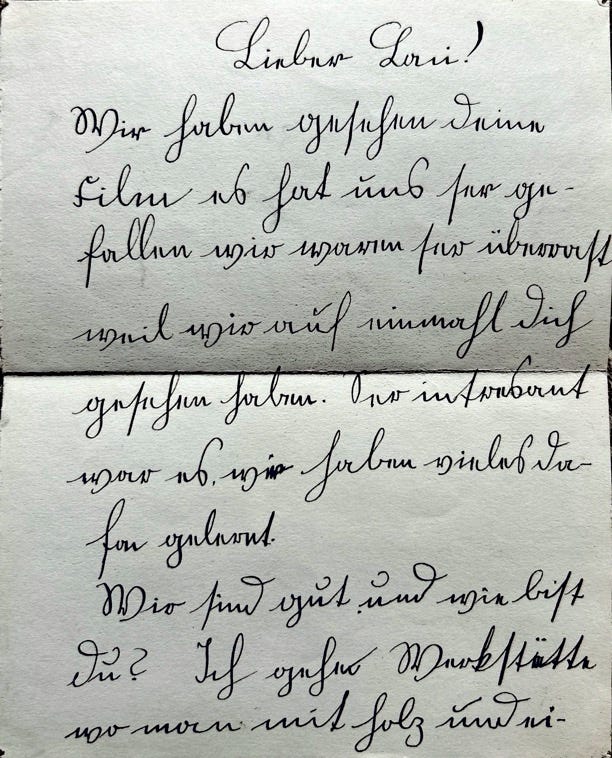 Lieber Lau!
Wir haben gesehen deine
Film es hat uns ser ge-
fallen wir waren ser überrast
weil wir auf einmahl dich
gesehen haben. Ser intresant
war es, wir haben vieles da-
fon gelernt.
Wir sind gut und wie bist
du? Ich gehe Werkstätte
wo man mit holz und ei-